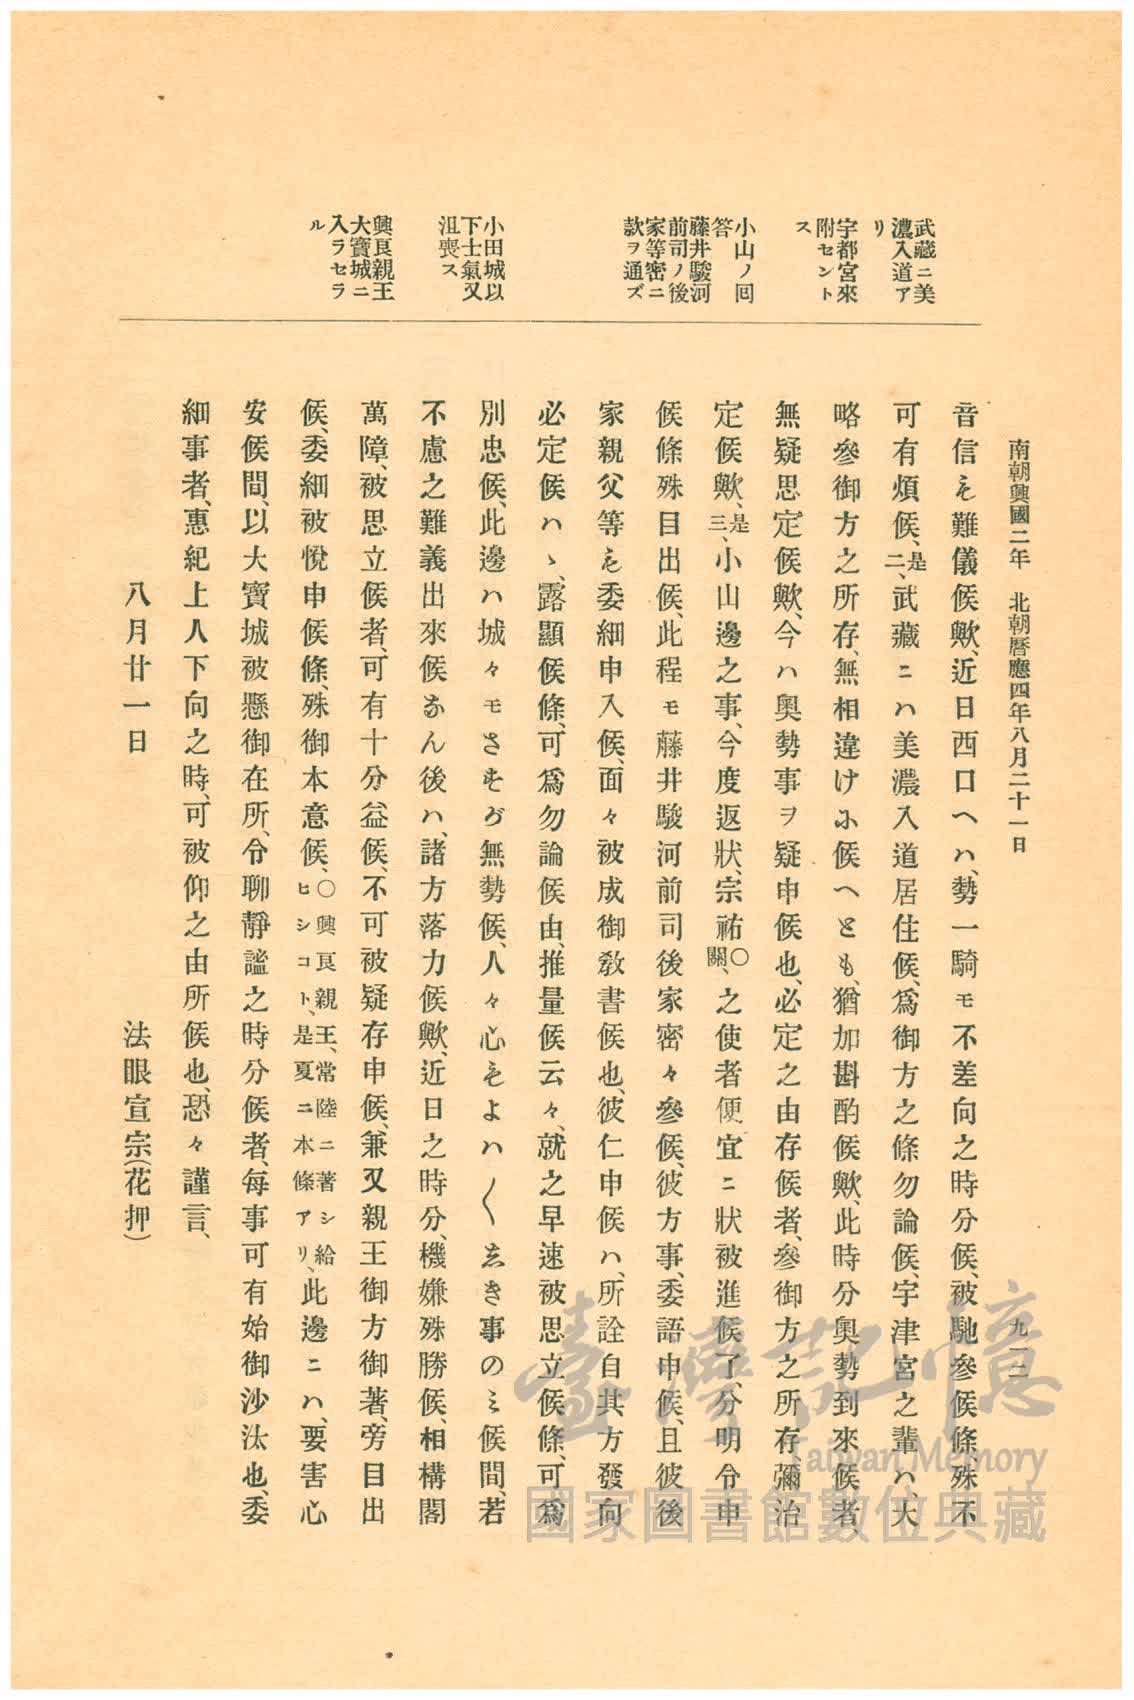 南朝興國二年 北朝曆應四年八月二十一日
九一二
武藏ニ美
濃入道ア
リ
宇都宮來
附セント
ス
小山ノ囘
答
藤井駿河
前司ノ後
家等密ニ
款ヲ通ズ
小田城以
下士氣又
沮喪ス
興良親王
大寶城ニ
入ラセラ
ル
音信も難儀候歟、近日西口へハ、勢一騎モ不差向之時分候、被馳參候條殊不
可有煩候、是二、武藏ニハ美濃入道居住候、爲御方之條勿論候、宇津宮之輩ハ、大
略參御方之所存、無相違けに候へとも、猶加斟酌候歟、此時分奧勢到來候者
無疑思定候歟、今ハ奧勢事ヲ疑申候也、必定之由存候者、參御方之所存彌治
定候歟、是三、小山邊之事、今度返狀、宗祐〇關、之使者便宜ニ狀被進候了、分明令申
候條殊目出候、此程モ藤井駿河前司後家密々參候、彼方事、委語申候、且彼後
家親父等も委細申入候、面々被成御敎書候也、彼仁申候ハ、所詮自其方發向
必定候ハヽ、露顯候條、可爲勿論候由、推量候云々、就之早速被思立候條、可爲
別忠候、此邊ハ城々モさすが無勢候、人々心もよハ〱しき事のミ候間、若
不慮之難義出來候なん後ハ、諸方落力候歟、近日之時分、機嫌殊勝候、相構閣
萬障、被思立候者、可有十分益候、不可被疑存申候、兼又親王御方御著、旁目出
候、委細被悅申候條、殊御本意候、〇興良親王、常陸ニ著シ給ヒシコト、是夏ニ本條アリ、此邊ニハ、要害心
安候間、以大寶城被懸御在所、令聊靜謐之時分候者、每事可有始御沙汰也、委
細事者、惠紀上人下向之時、可被仰之由所候也、恐々謹言、
八月廿一日 法眼宣宗(花押)
臺灣記憶
Taiwan Memory
國家圖書館數位典藏